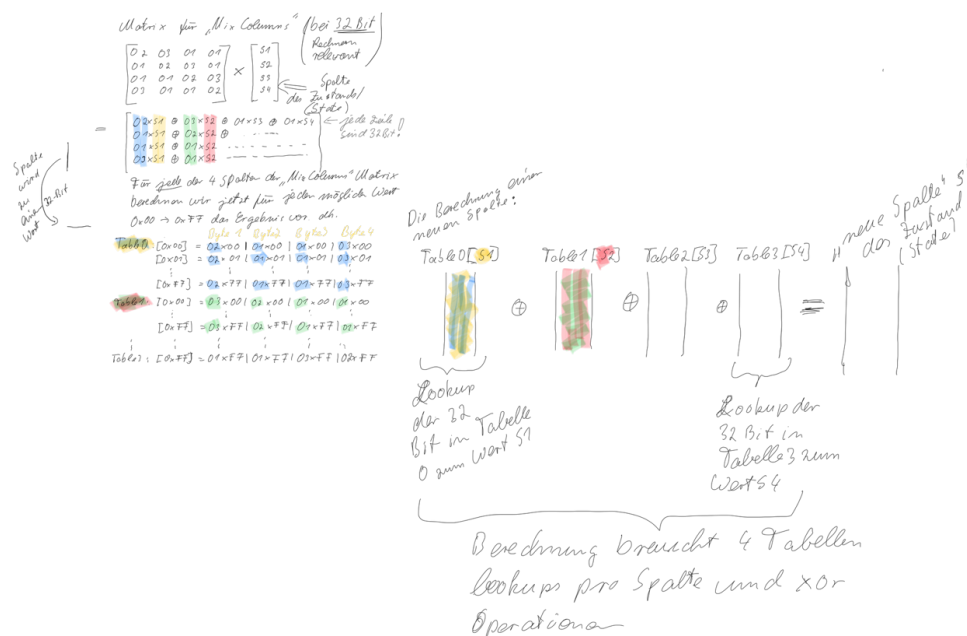 Matrix für „Mix Columns" (bei 32 Bit
Rechnern
relevant)
02 03 01 01
01 02 03 01
01 01 02 03
03 01 01 02
×
S1
S2
S3
S4
Spalte
des Zustands/
(State)
=
02×S1 ⊕ 03×S2 ⊕ 01×S3 ⊕ 01×S4
01×S1 ⊕ 02×S2 ⊕
01×S1 ⊕ 01×S2
03×S1 ⊕ 01×S2
jede Zeile
sind 32Bit!
Spalte
wird
zu
32-Bit
Wort
Für jede der 4 Spalten der „Mix Columns" Matrix
berechnen wir jetzt für jeden möglichen Wert
0x00 → 0xFF das Ergebnis vor. dh.
Byte 1 Byte2 Byte3 Byte4
Table0 [0x00] = 02×00 | 01×00 | 01×00 | 03×00
[0x01] = 02×01 | 01×01 | 01×01 | 03×01
[0xFF] = 02×FF | 01×FF | 01×FF | 03×FF
Table1 [0x00] = 03×00 | 02×00 | 01×00 | 01×00
[0xFF] = 03×FF | 02×FF | 01×FF | 01×FF
Table3: [0xFF] = 01×FF | 01×FF | 03×FF | 02×FF
Die Berechnung einer
neuen Spalte:
Table0[S1] Table1[S2] Table2[S3] Table3[S4]
⊕ ⊕ ⊕ =
„neue Spalte" S
des Zustand
(State)
Lookup
der 32
Bit in Tabelle
0 zum Wert S1
Lookup der
32 Bit in
Tabelle 3 zum
Wert S4
Berechnung braucht 4 Tabellen
lookups pro Spalte und xor
Operationen